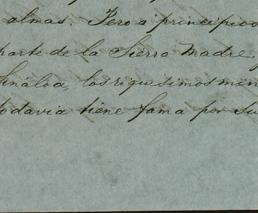 almas. Pero a principios
parte de la Sierra Madre,
Sinaloa, los riquisimos min
todavia tiene fama por su